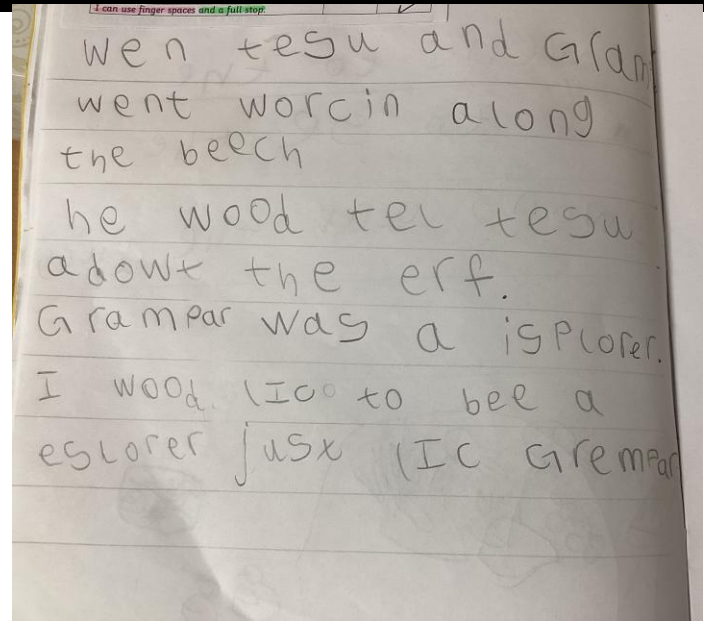 I can use finger spaces and a full stop.
wen tesu and Gram
went worcin along
the beech
he wood tel tesu
adowt the erf.
Grampar was a isplorer.
I wood lIc to bee a
eslorer jusx lIc Grempar